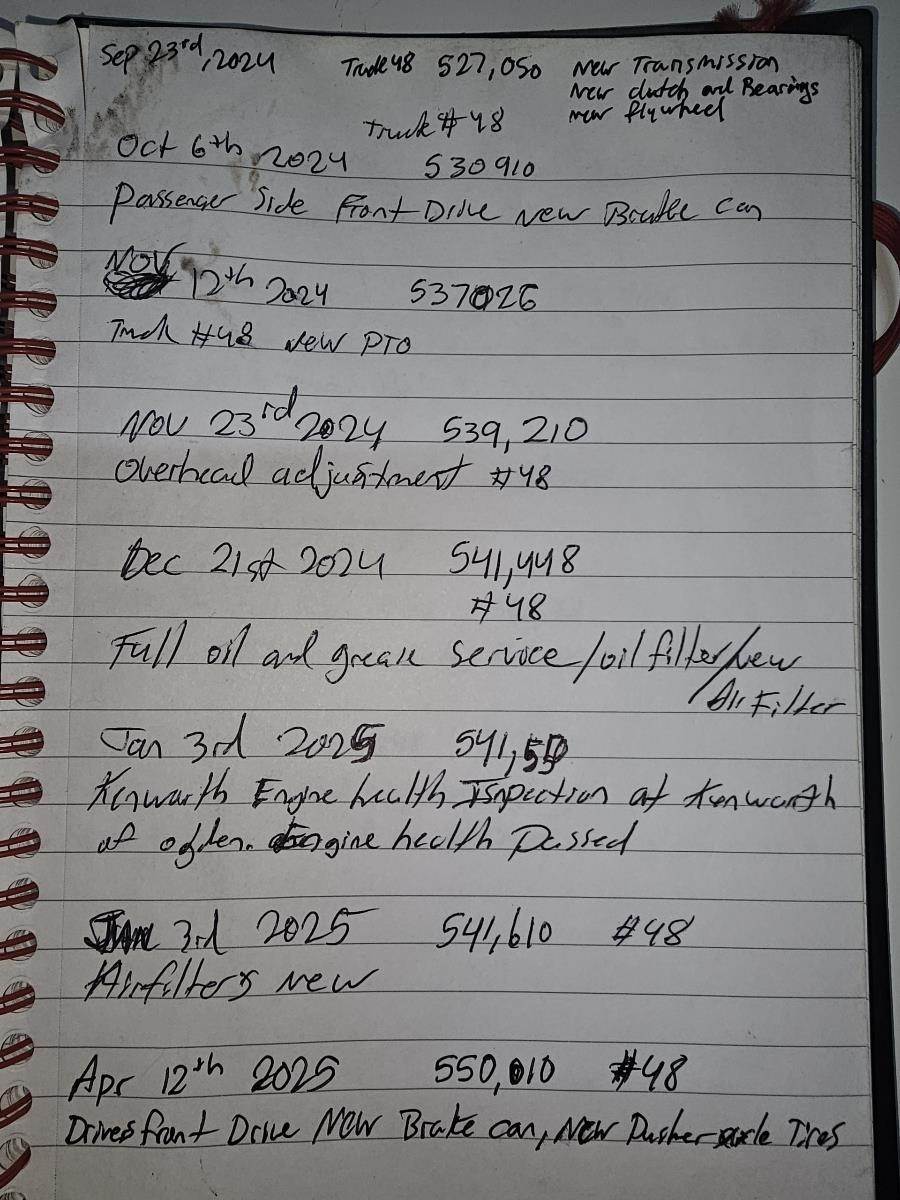 Sep 23rd, 2024 Truck 48 527,050 New Transmission
New clutch and Bearings
new flywheel
Truck # 48
Oct 6th 2024 530910
Passenger Side Front Drive New Brake can
NOV 12th 2024 537026
Truck #48 New PTO
Nov 23rd 2024 539,210
Overhead adjustment #48
Dec 21st 2024 541,448
#48
Full oil and grease service/oil filter/New
Air Filter
Jan 3rd 2025
Kenworth Engine health Inspection at Kenworth
of ogden. Engine health Passed
3rd 2025 541,610 #48
Airfilters new
Apr 12th 2025 550,010 #48
Drives front Drive New Brake can, New Pusher axle Tires